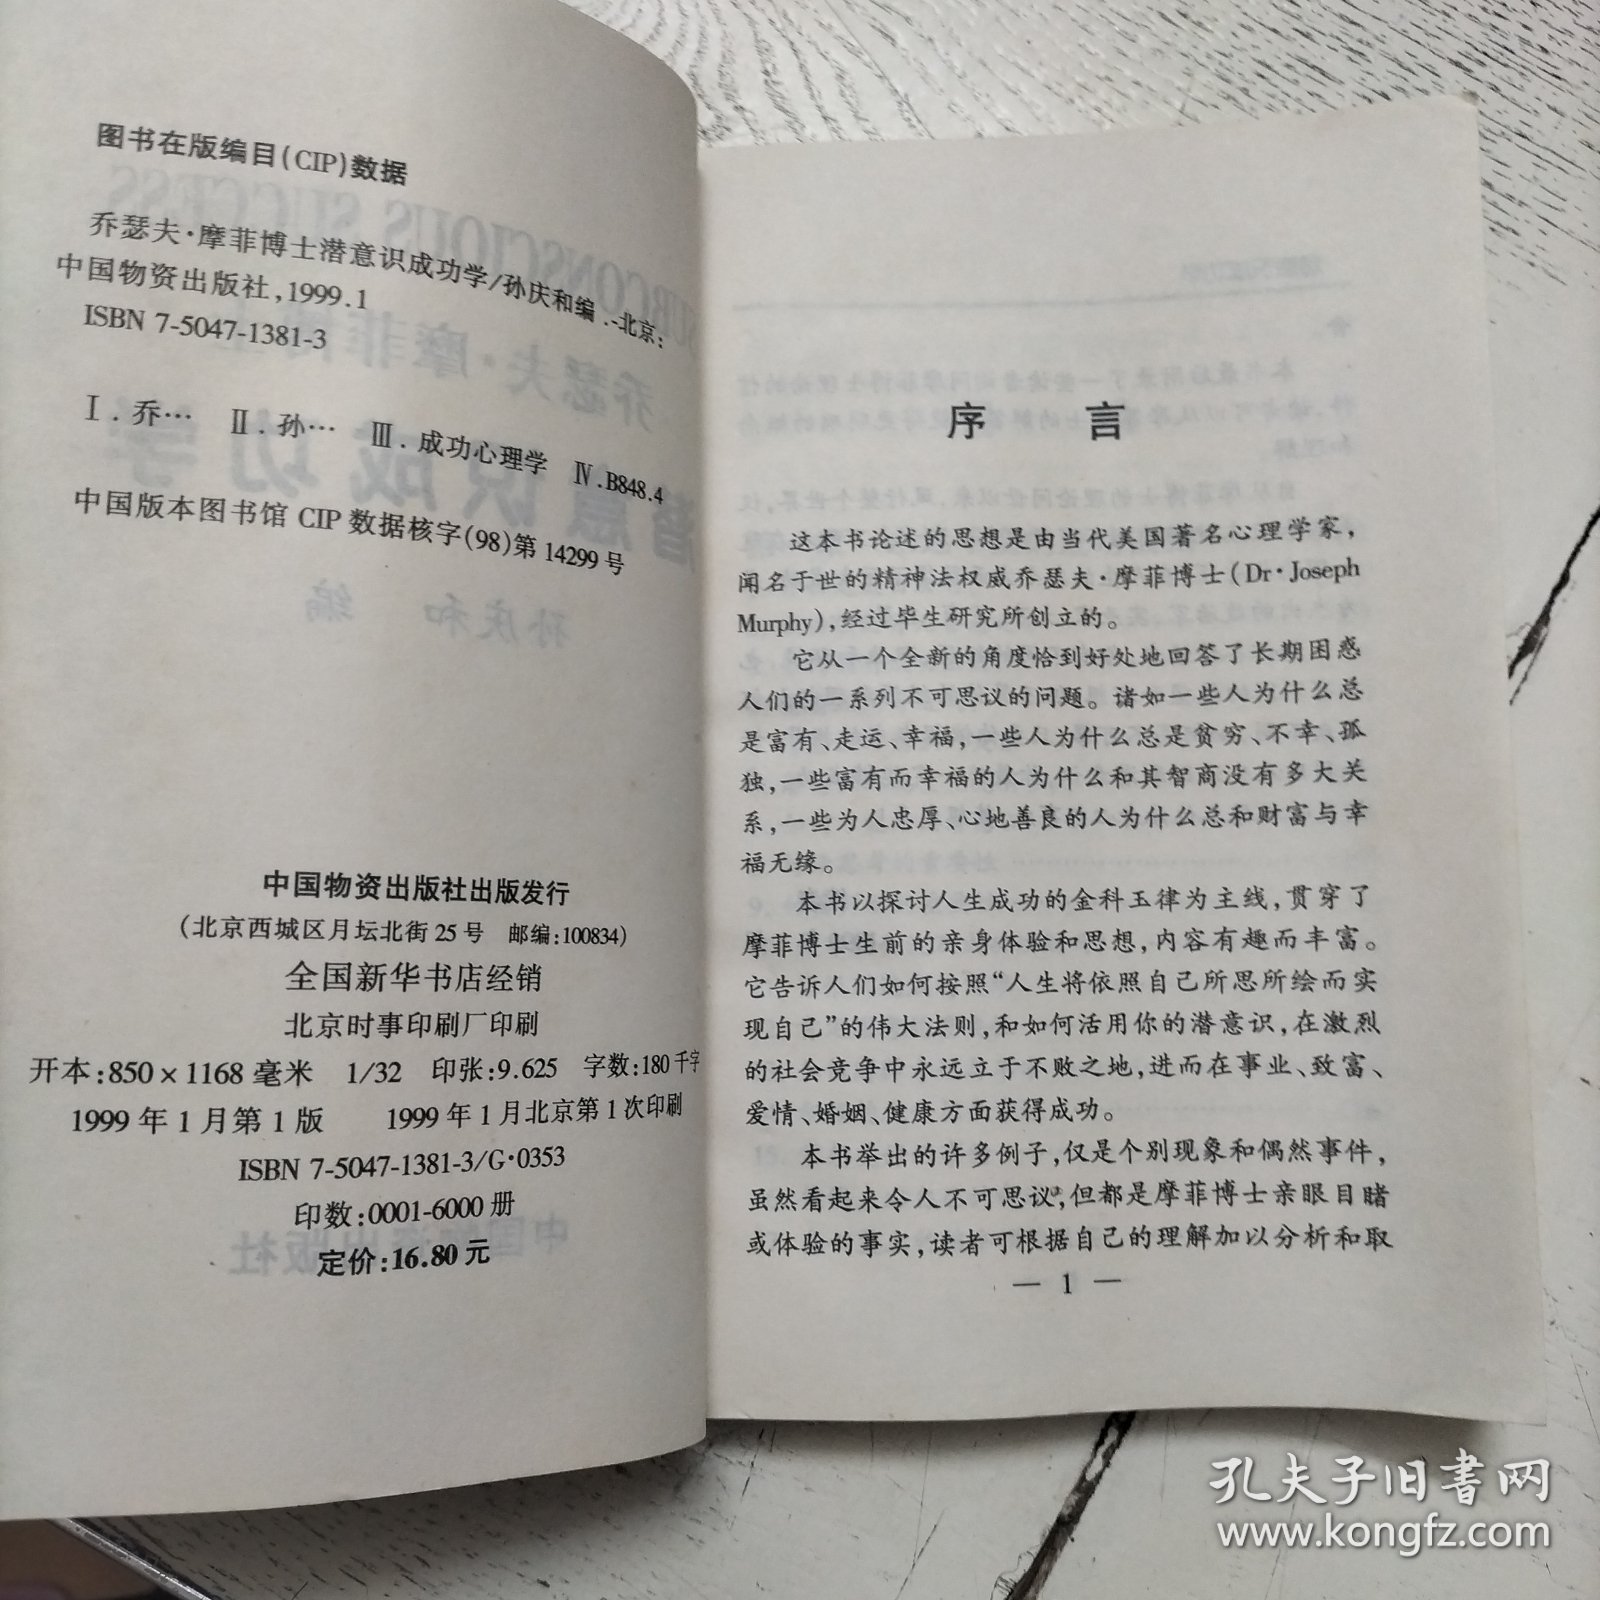 图书在版编目(CIP)数据
乔瑟夫·摩菲博士潜意识成功学/孙庆和编.-北京:
中国物资出版社,1999.1
ISBN 7-5047-1381-3
Ⅰ.乔… Ⅱ.孙… Ⅲ.成功心理学 Ⅳ.B848.4
中国版本图书馆 CIP 数据核字(98)第 14299 号
中国物资出版社出版发行
(北京西城区月坛北街 25 号 邮编:100834)
全国新华书店经销
北京时事印刷厂印刷
开本:850×1168 毫米 1/32 印张:9.625 字数:180 千字
1999 年 1 月第 1 版 1999 年 1 月北京第 1 次印刷
ISBN 7-5047-1381-3/G·0353
印数:0001-6000 册
定价:16.80 元
序 言
这本书论述的思想是由当代美国著名心理学家,
闻名于世的精神法权威乔瑟夫·摩菲博士(Dr·Joseph
Murphy),经过毕生研究所创立的。
它从一个全新的角度恰到好处地回答了长期困惑
人们的一系列不可思议的问题。诸如一些人为什么总
是富有、走运、幸福,一些人为什么总是贫穷、不幸、孤
独,一些富有而幸福的人为什么和其智商没有多大关
系,一些为人忠厚、心地善良的人为什么总和财富与幸
福无缘。
本书以探讨人生成功的金科玉律为主线,贯穿了
摩菲博士生前的亲身体验和思想,内容有趣而丰富。
它告诉人们如何按照“人生将依照自己所思所绘而实
现自己”的伟大法则,和如何活用你的潜意识,在激烈
的社会竞争中永远立于不败之地,进而在事业、致富、
爱情、婚姻、健康方面获得成功。
本书举出的许多例子,仅是个别现象和偶然事件,
虽然看起来令人不可思议,但都是摩菲博士亲眼目睹
或体验的事实,读者可根据自己的理解加以分析和取
— 1 —
孔夫子旧书网
www.kongfz.com